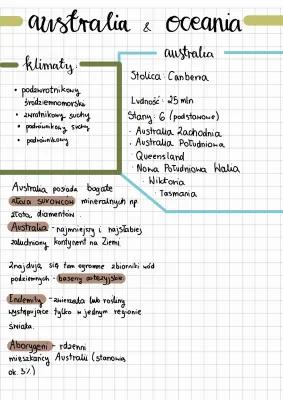 australia & oceania
klimaty:
• podzwrotnikowy
śródziemnomorski
• zwrotnikowy suchy
• podrównikowy suchy
• podrównikowy
australia
Stolica: Canberra
Ludność: 25 mln
Stany: 6 (podstawowe)
• Australia Zachodnia
• Australia Południowa
Queensland
• Nowa Południowa Walia
• Wiktoria
• Tasmania
Australia posiada bogate
złoża surowców mineralnych np.
złota diamentów.
Australia - najmniejszy i najsłabiej
zaludniony kontynent na Ziemi
Znajdują się tam ogromne zbiorniki wód
podziemnych - baseny artezyjskie
Endemity - zwierzęta lub rośliny
występujące tylko w jednym regionie
świata.
Aborygeni - rdzenni
mieszkańcy Australii (stanowią
ok. 3%)